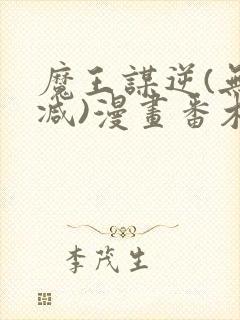 魔王謀逆(無
減)漫畫番木
李茂生